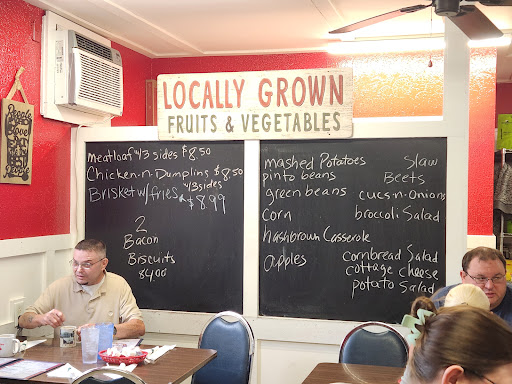 LOCALLY GROWN
FRUITS & VEGETABLES
Meatloaf w/3 sides $8.50
Chicken-n-Dumpling $8.50
w/3 sides
Brisket w/fries $8.99
2
Bacon
Biscuits
$4.00
mashed Potatoes
pinto beans
green beans
corn
hashbrown Casserole
apples
Slaw
Beets
cucs-n-Onions
broccoli Salad
cornbread Salad
cottage cheese
potato Salad
People
Love